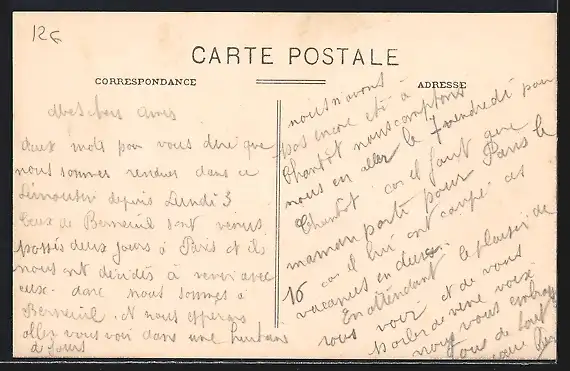 12€
CARTE POSTALE
CORRESPONDANCE
ADRESSE
Mes chers Amis
deux mots pour vous dire que
nous sommes rendues dans ce
Limousin depuis Lundi 3
Ceux de Berneuil sont venus
passés deux jours à Paris et ils
nous ont décidés à revenir avec
eux. donc nous sommes à
Berneuil. et nous esperons
aller vous voir dans une huitaine
de jours
nous n'avons
pas encore été à
Chantôt nous comptons
nous en aller le 7 vendredi pour
Chantôt. car il faut que
maman parte pour Paris le
16 car il lui ont coupé ces
vacances en deux.
En attendant le plaisir de
vous voir et de vous
parler de vive voix
nous vous embrasse
tous de tout